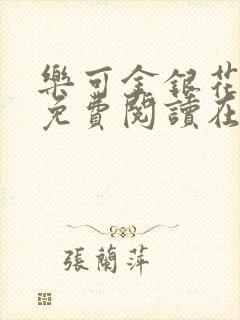 樂可金銀花
免費閱讀在
張蘭萍